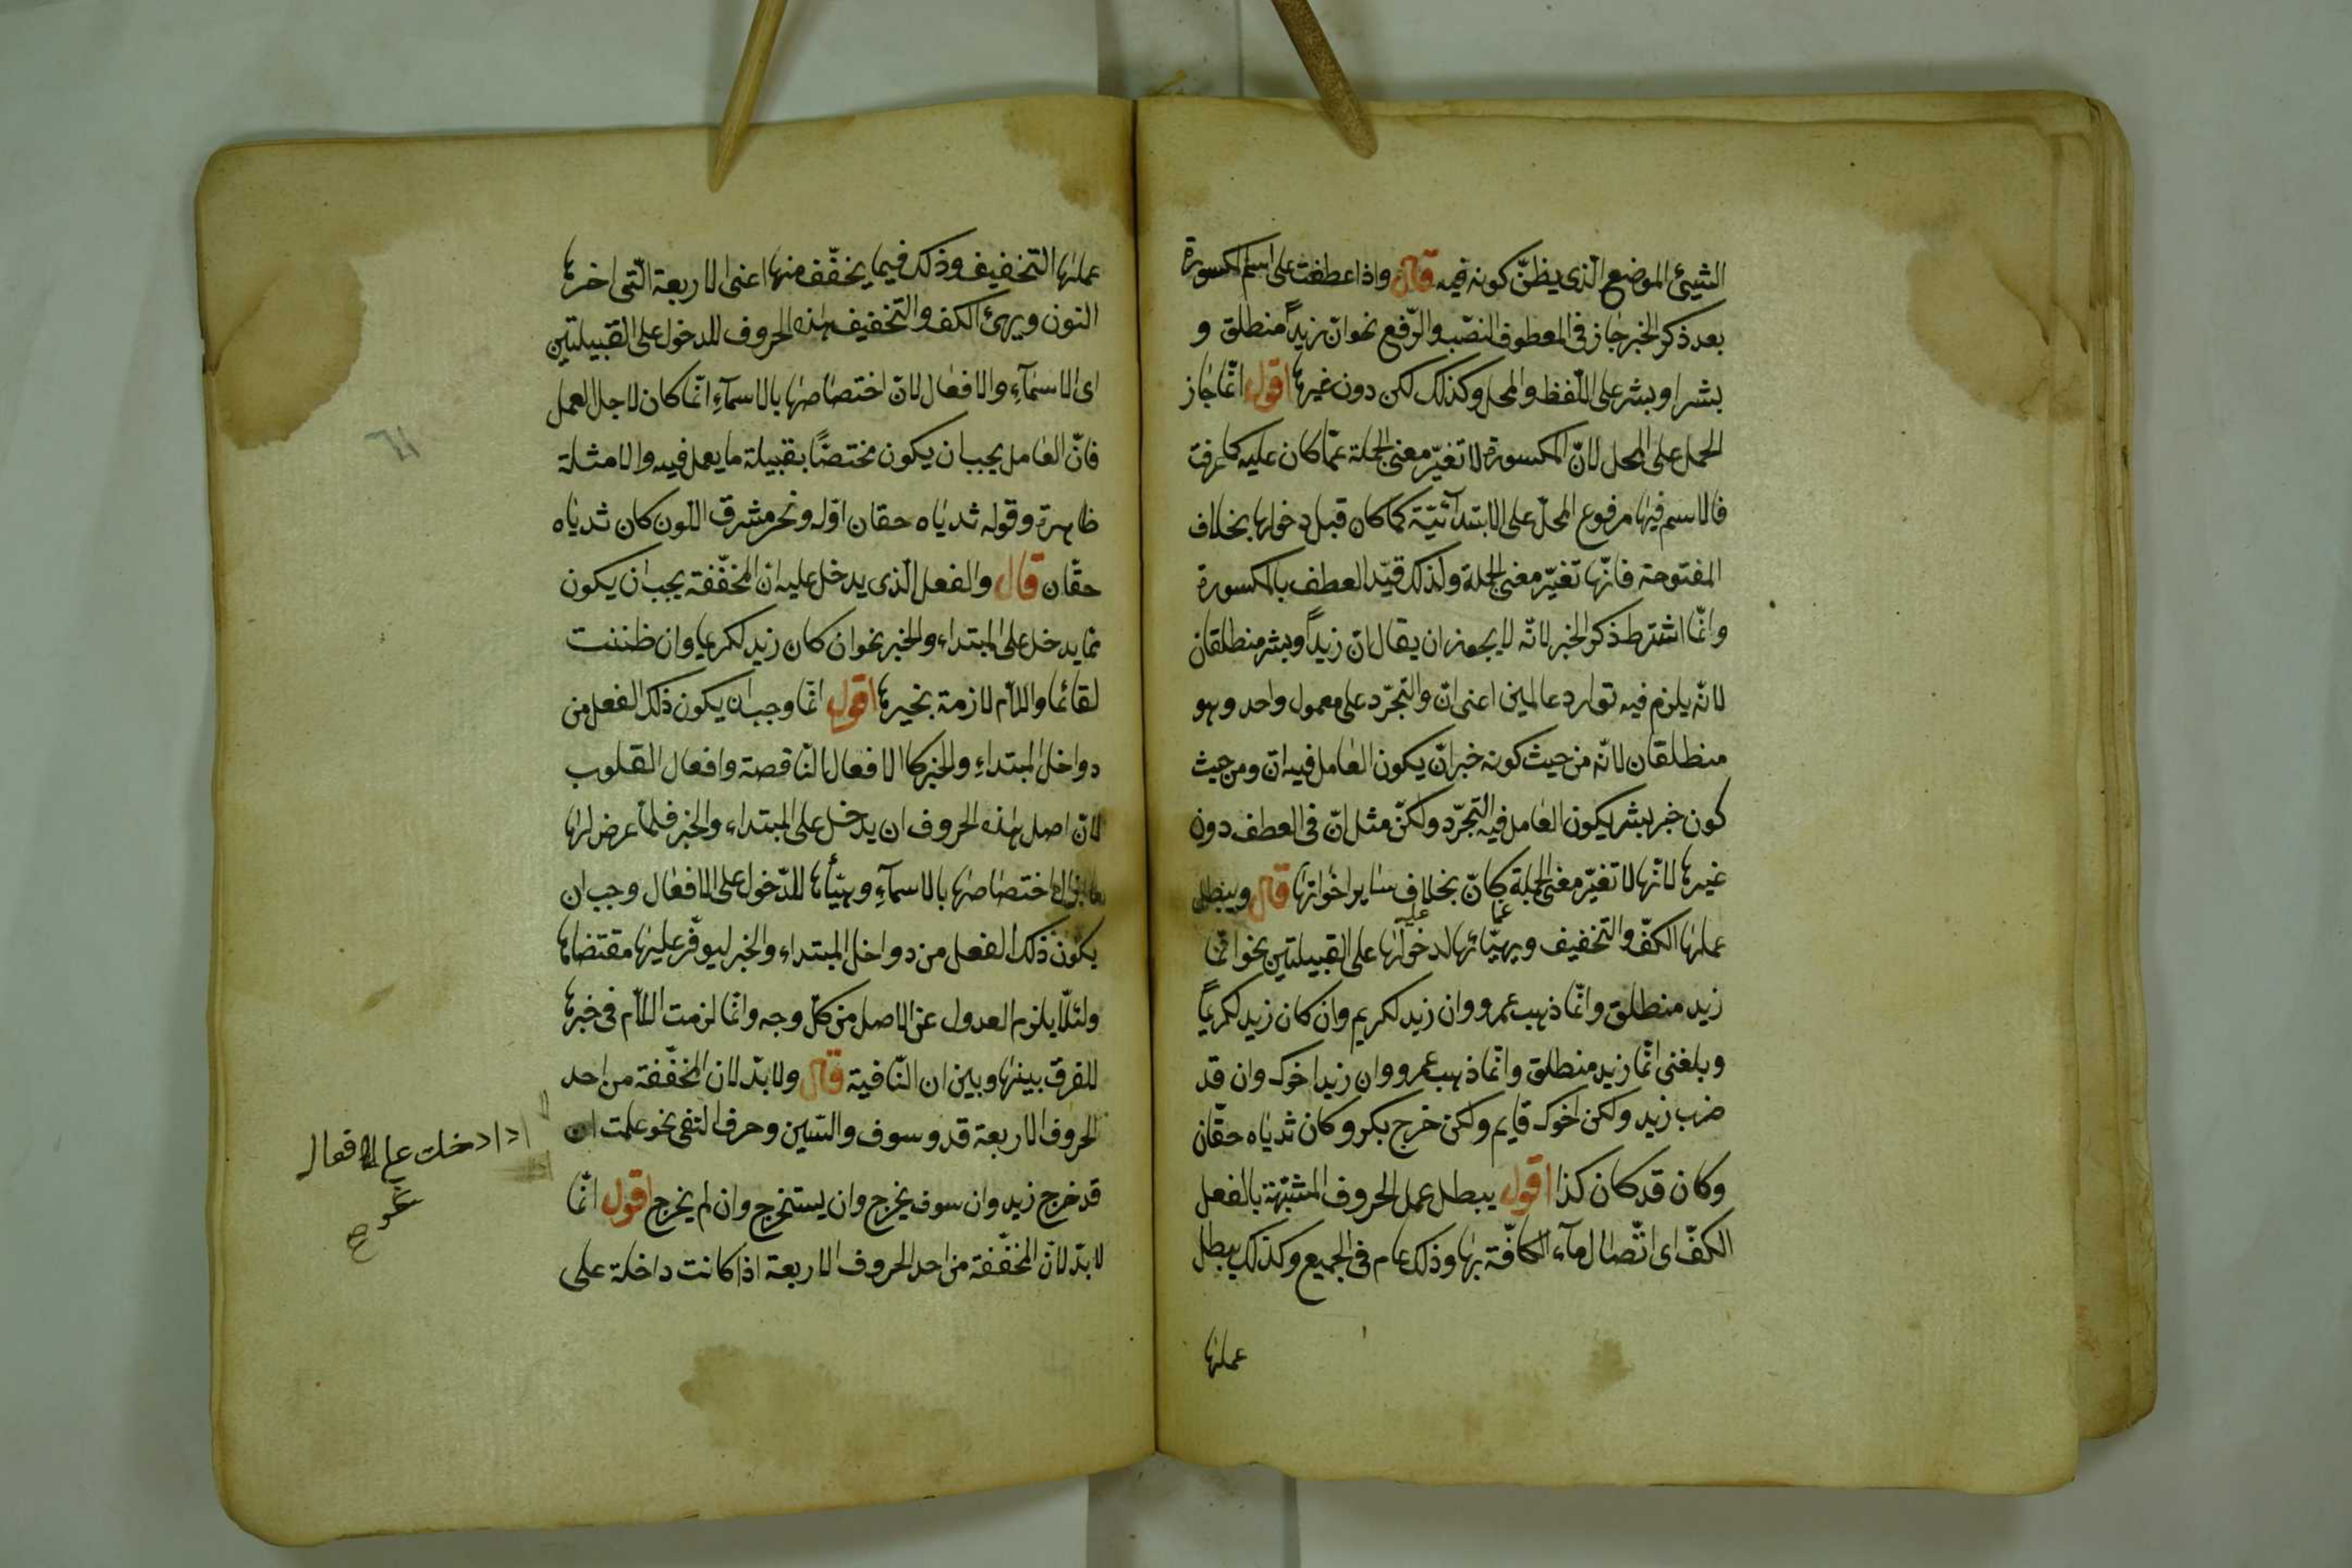 الشيئ الموضع الّذى يظنّ كونه فيه قال واذا عطفت على اسم المكسورة
بعد ذكر الخبر جاز فى المعطوف النصب والرّفع نحو انّ زيداً منطلق و
بشرا وبشر على اللّفظ والمحل وكذلك لكن دون غيرها اقول انّما جاز
الحمل على المحل لانّ المكسورة لا تغيّر معنى الجملة عمّا كان عليه كما عرفت
فالاسم فيها مرفوع المحلّ على الابتدآئيّة كما كان قبل دخولها بخلاف
المفتوحة فانّها تغيّر معنى الجملة ولذلك قيّد العطف بالمكسورة
وانّما اشترط ذكر الخبر لانّه لا يجوز ان يقال انّ زيداً وبشر منطلقان
لانّه يلزم فيه توارد عاملين اعنى انّ والتجرّد على معمول واحد وهو
منطلقان لانّه من حيث كونه خبر انّ يكون العامل فيه انّ ومن حيث
كون خبر بشر يكون العامل فيه التجرّد ولكنّ مثل انّ فى العطف دون
غيرها لانّها لا تغيّر معنى الجملة كانّ بخلاف ساير اخواتها قال ويبطل
عملها الكفّ والتخفيف ويهيّائها لدخولها على القبيلتين نحو انّما
زيد منطلق وانّما ذهب عمرو وان زيد لكريم وان كان زيد لكريماً
وبلغنى انّما زيد منطلق وانّما ذهب عمرو وان زيدا خوك وان قد
ضرب زيد ولكن اخوك قايم ولكن خرج بكر وكان ثدياه حقّان
وكان قد كان كذا اقول يبطل عمل الحروف المشبّهة بالفعل
الكفّ اى اتّصال مآء الكافّة بها وذلك عام فى الجميع وكذلك يبطل
عملها
عملها التخفيف وذلك فيما يخفّف منها اعنى الاربعة الّتى اخرها
النون ويهئ الكف والتخفيف هذه الحروف للدخول على القبيلتين
اى الاسمآءِ والافعال لانّ اختصاصها بالاسمآءِ انّما كان لاجل العمل
فانّ العامل يجب ان يكون مختصّاً بقبيلة ما يعمل فيه والامثلة
ظاهرة وقوله ثدياه حقان اوّله ونحر مشرق اللّون كان ثدياه
حقّان قال والفعل الّذى يدخل عليه ان المخفّفة يجب ان يكون
ممّا يدخل على المبتداء والخبر نحو ان كان زيد لكريما وان ظننت
لقائما واللاّم لازمة بخبرها اقول انّما وجب ان يكون ذلك الفعل من
دواخل المبتداءِ والخبر كالافعال النّاقصة وافعال القلوب
لانّ اصل هذه الحروف ان يدخل على المبتداء والخبر فلمّا عرض لها
اختصاصها بالاسمآءِ وهيّأها للدّخول على الافعال وجب ان
يكون ذلك الفعل من دواخل المبتداء والخبر ليوفّر عليها مقتضاها
ولئلّا يلزم العدول عن الاصل من كلّ وجه وانّما لزمت اللاّم فى خبرها
للفرق بينها وبين ان النّافية قال ولا بدّ لان المخفّفة من احد
الحروف الاربعة قد وسوف والسّين وحرف النّفى نحو علمت ان
قد خرج زيد وان سوف يخرج وان يستخرج وان لم يخرج اقول انّما
لا بدّ لان المخفّفة من احد الحروف الاربعة اذا كانت داخلة على
اذا دخلت على الافعال